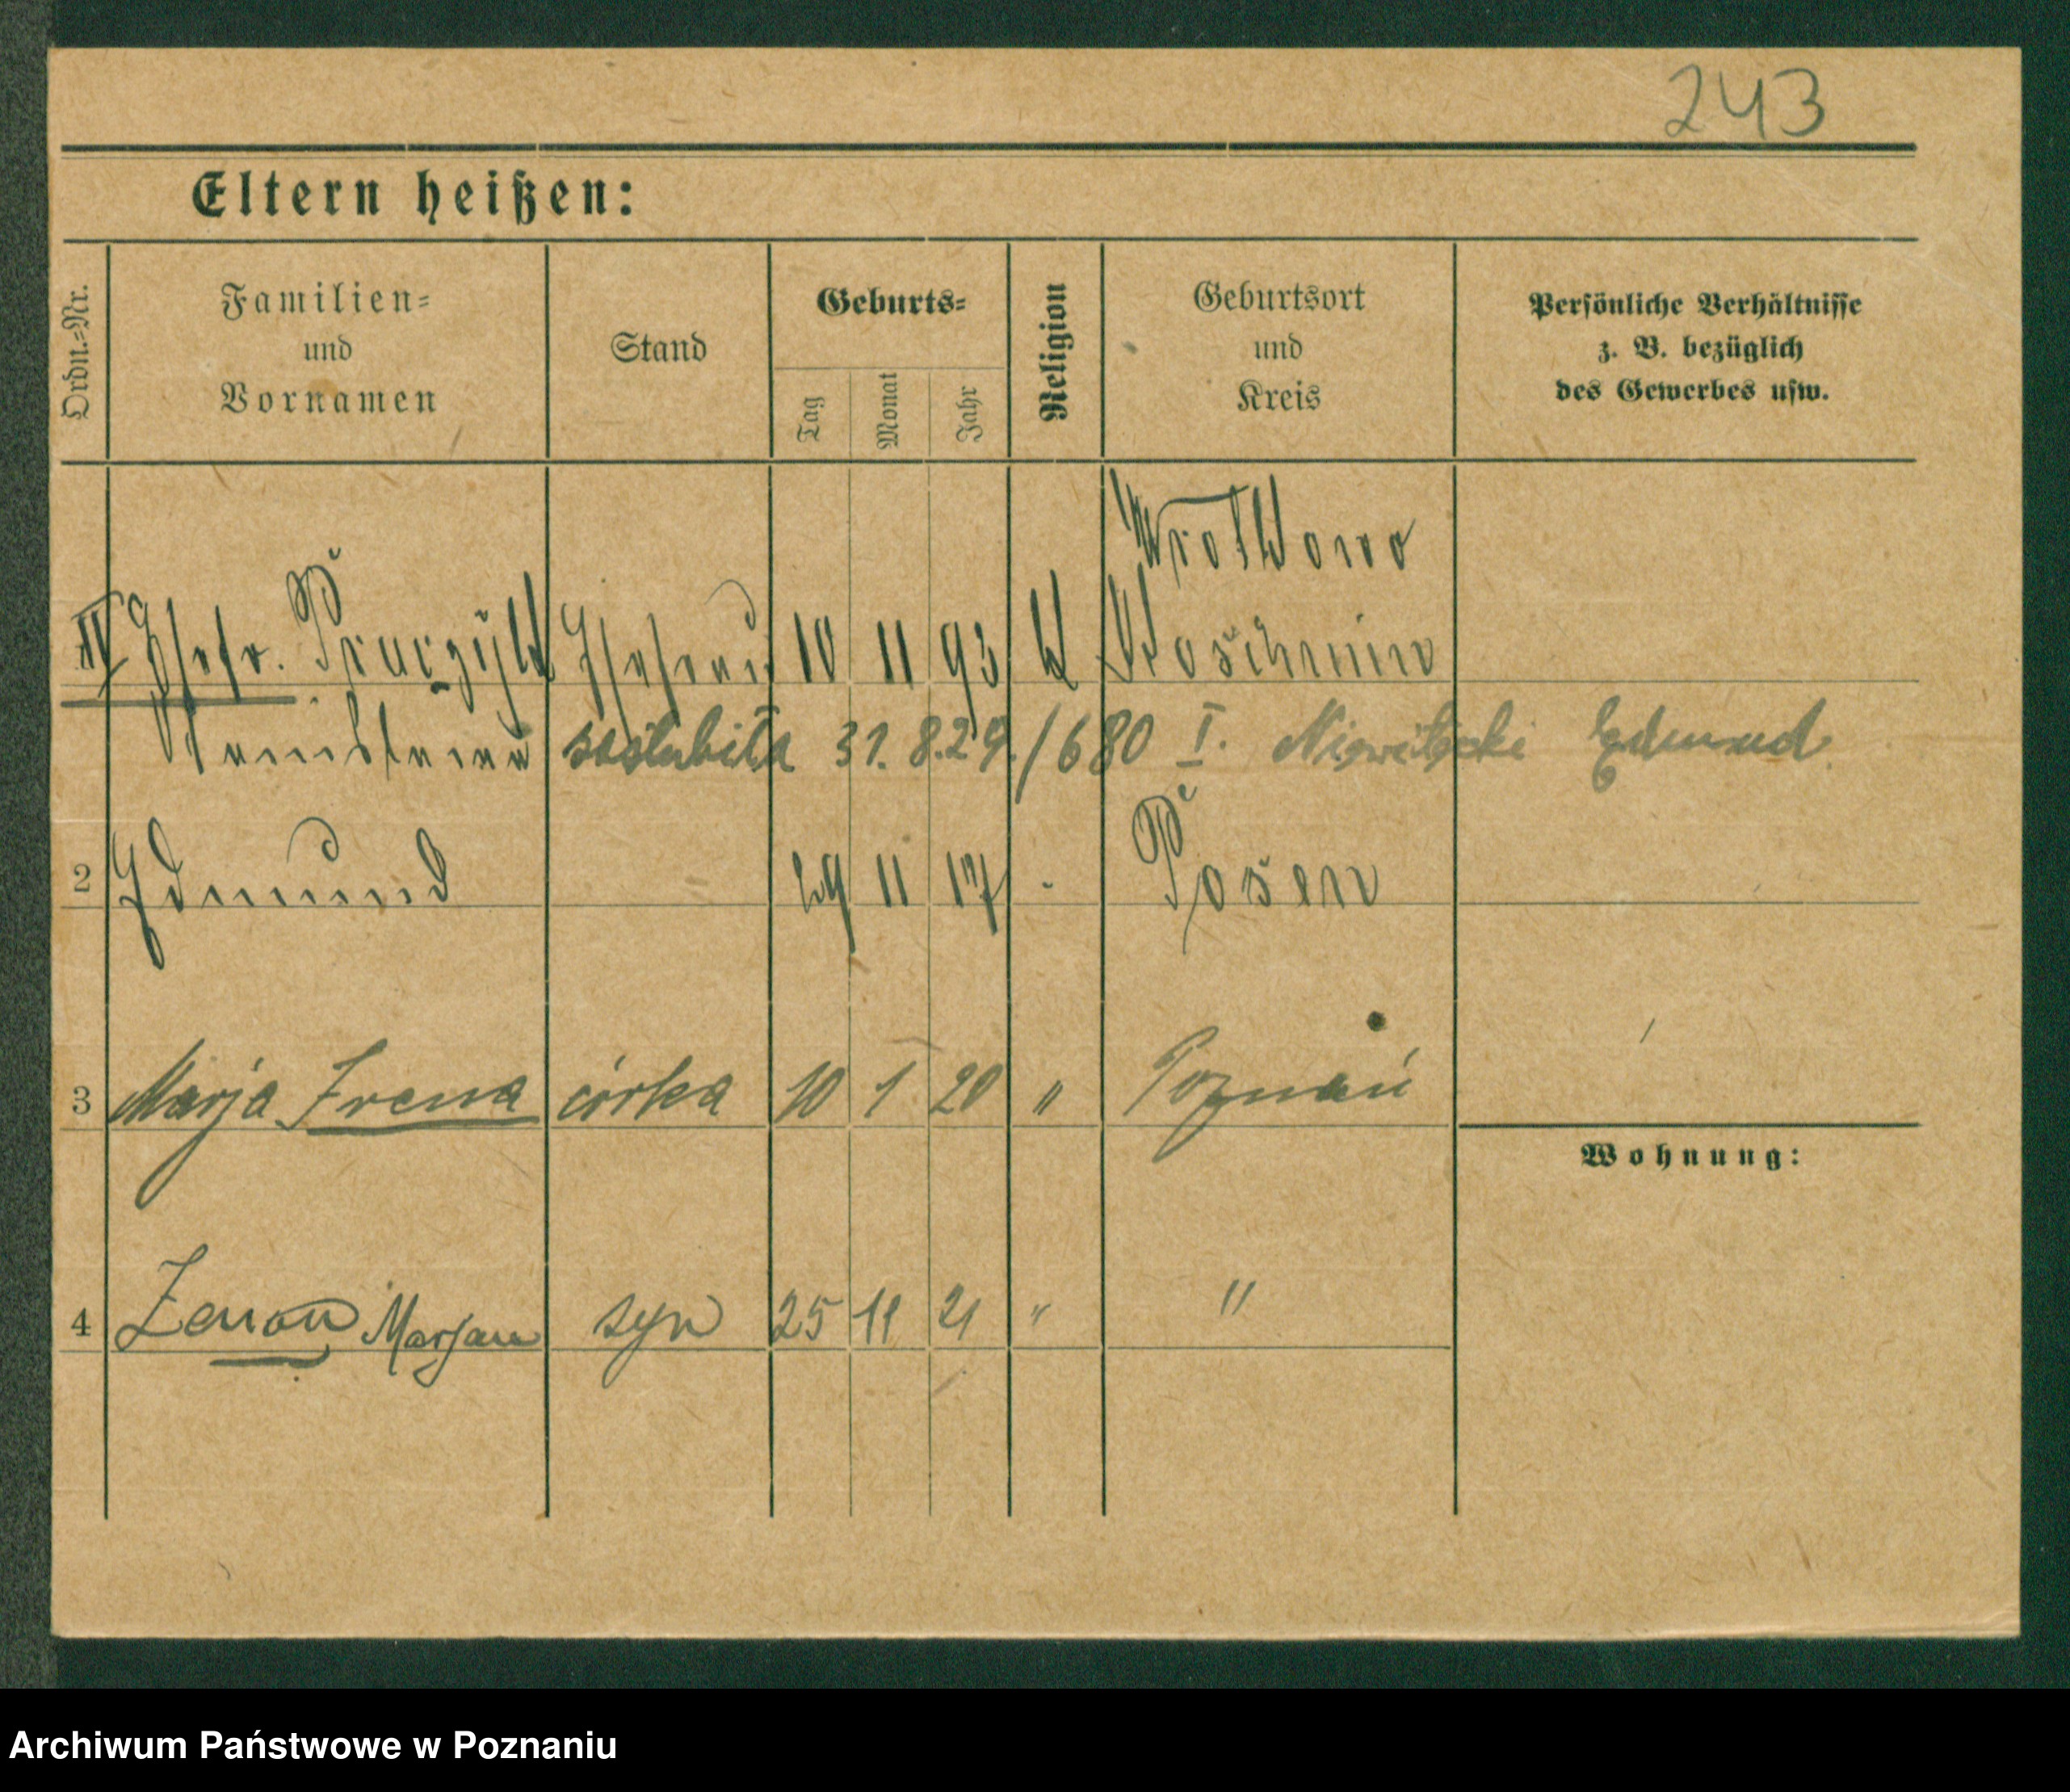 243
Eltern heißen:
Ordn.=Nr.
Familien=
und
Vornamen
Stand
Geburts=
Tag
Monat
Jahr
Religion
Geburtsort
und
Kreis
Persönliche Verhältnisse
z. B. bezüglich
des Gewerbes usw.
Ehefr. Ehefrau 10 11 93 k
31.8.29./680 I. Edmund
2 Edmund 29 11 17 Posen
3 Marja Irena córka 10 1 20 " Poznań
Wohnung:
4 Zenon Marjan syn 25 11 21 " "
Archiwum Państwowe w Poznaniu